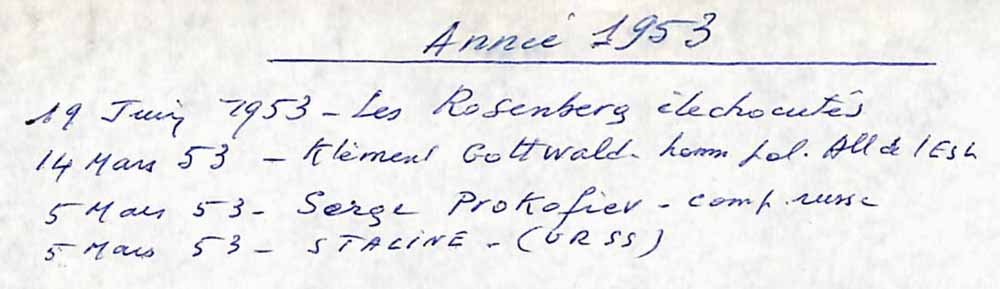 Année 1953
19 Juin 1953 - Les Rosenberg électrocutés
14 Mars 53 - Klément Gottwald - homm pol. All de l'Est
5 Mars 53 - Serge Prokofiev - comp. russe
5 Mars 53 - STALINE - (URSS)